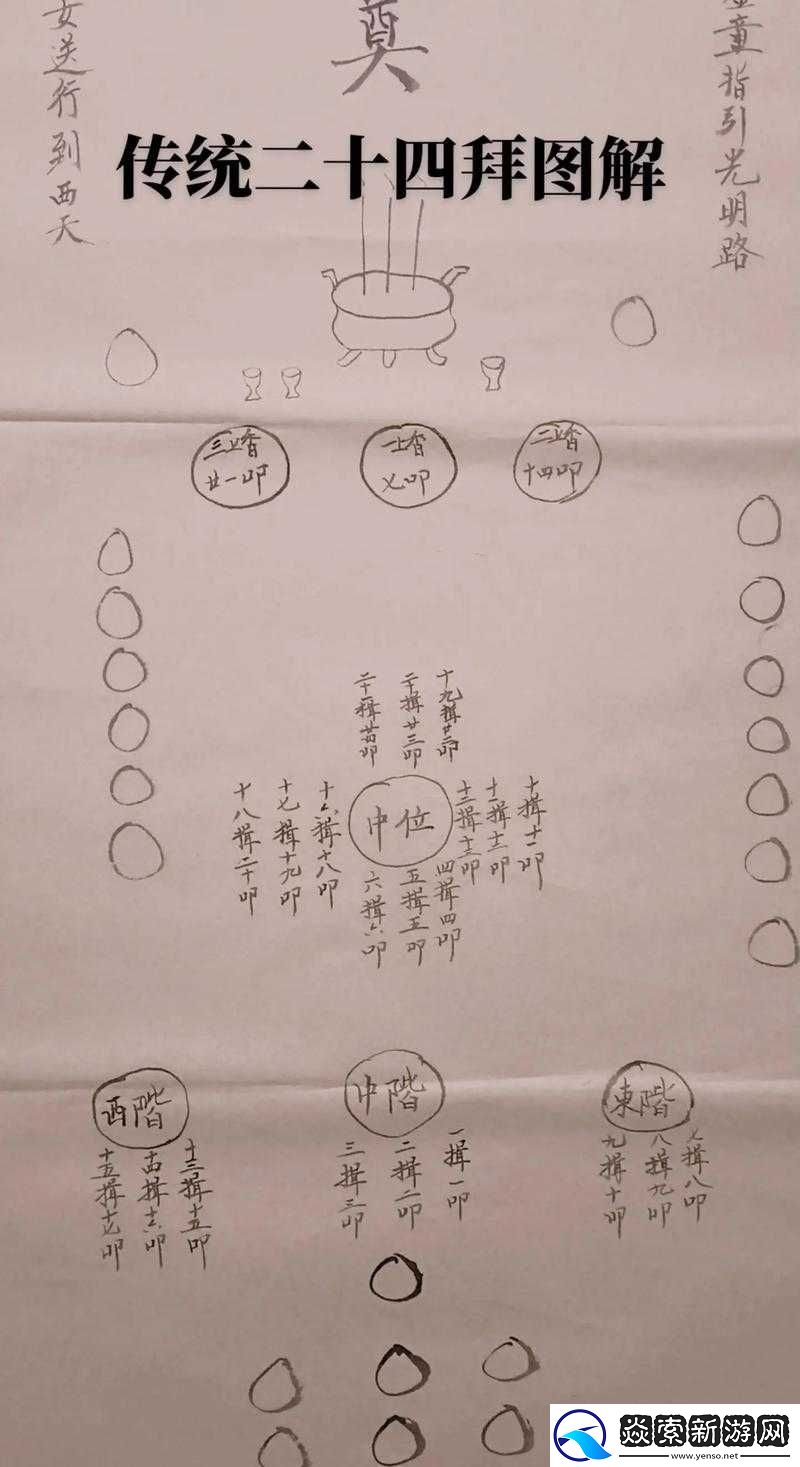 奠
女送行到西天
童指引光明路
传统二十四拜图解
三上香
廿一叩
一上香
七叩
二上香
十四叩
十九揖廿二叩
二十揖廿三叩
二十一揖廿四叩
中位
十揖十一叩
十一揖十二叩
十二揖十三叩
十六揖十八叩
十七揖十九叩
十八揖二十叩
四揖四叩
五揖五叩
六揖六叩
西階
中階
東階
十三揖十五叩
十四揖十六叩
十五揖十七叩
一揖一叩
二揖二叩
三揖三叩
七揖八叩
八揖九叩
九揖十叩
焱索新游网
www.yenso.net